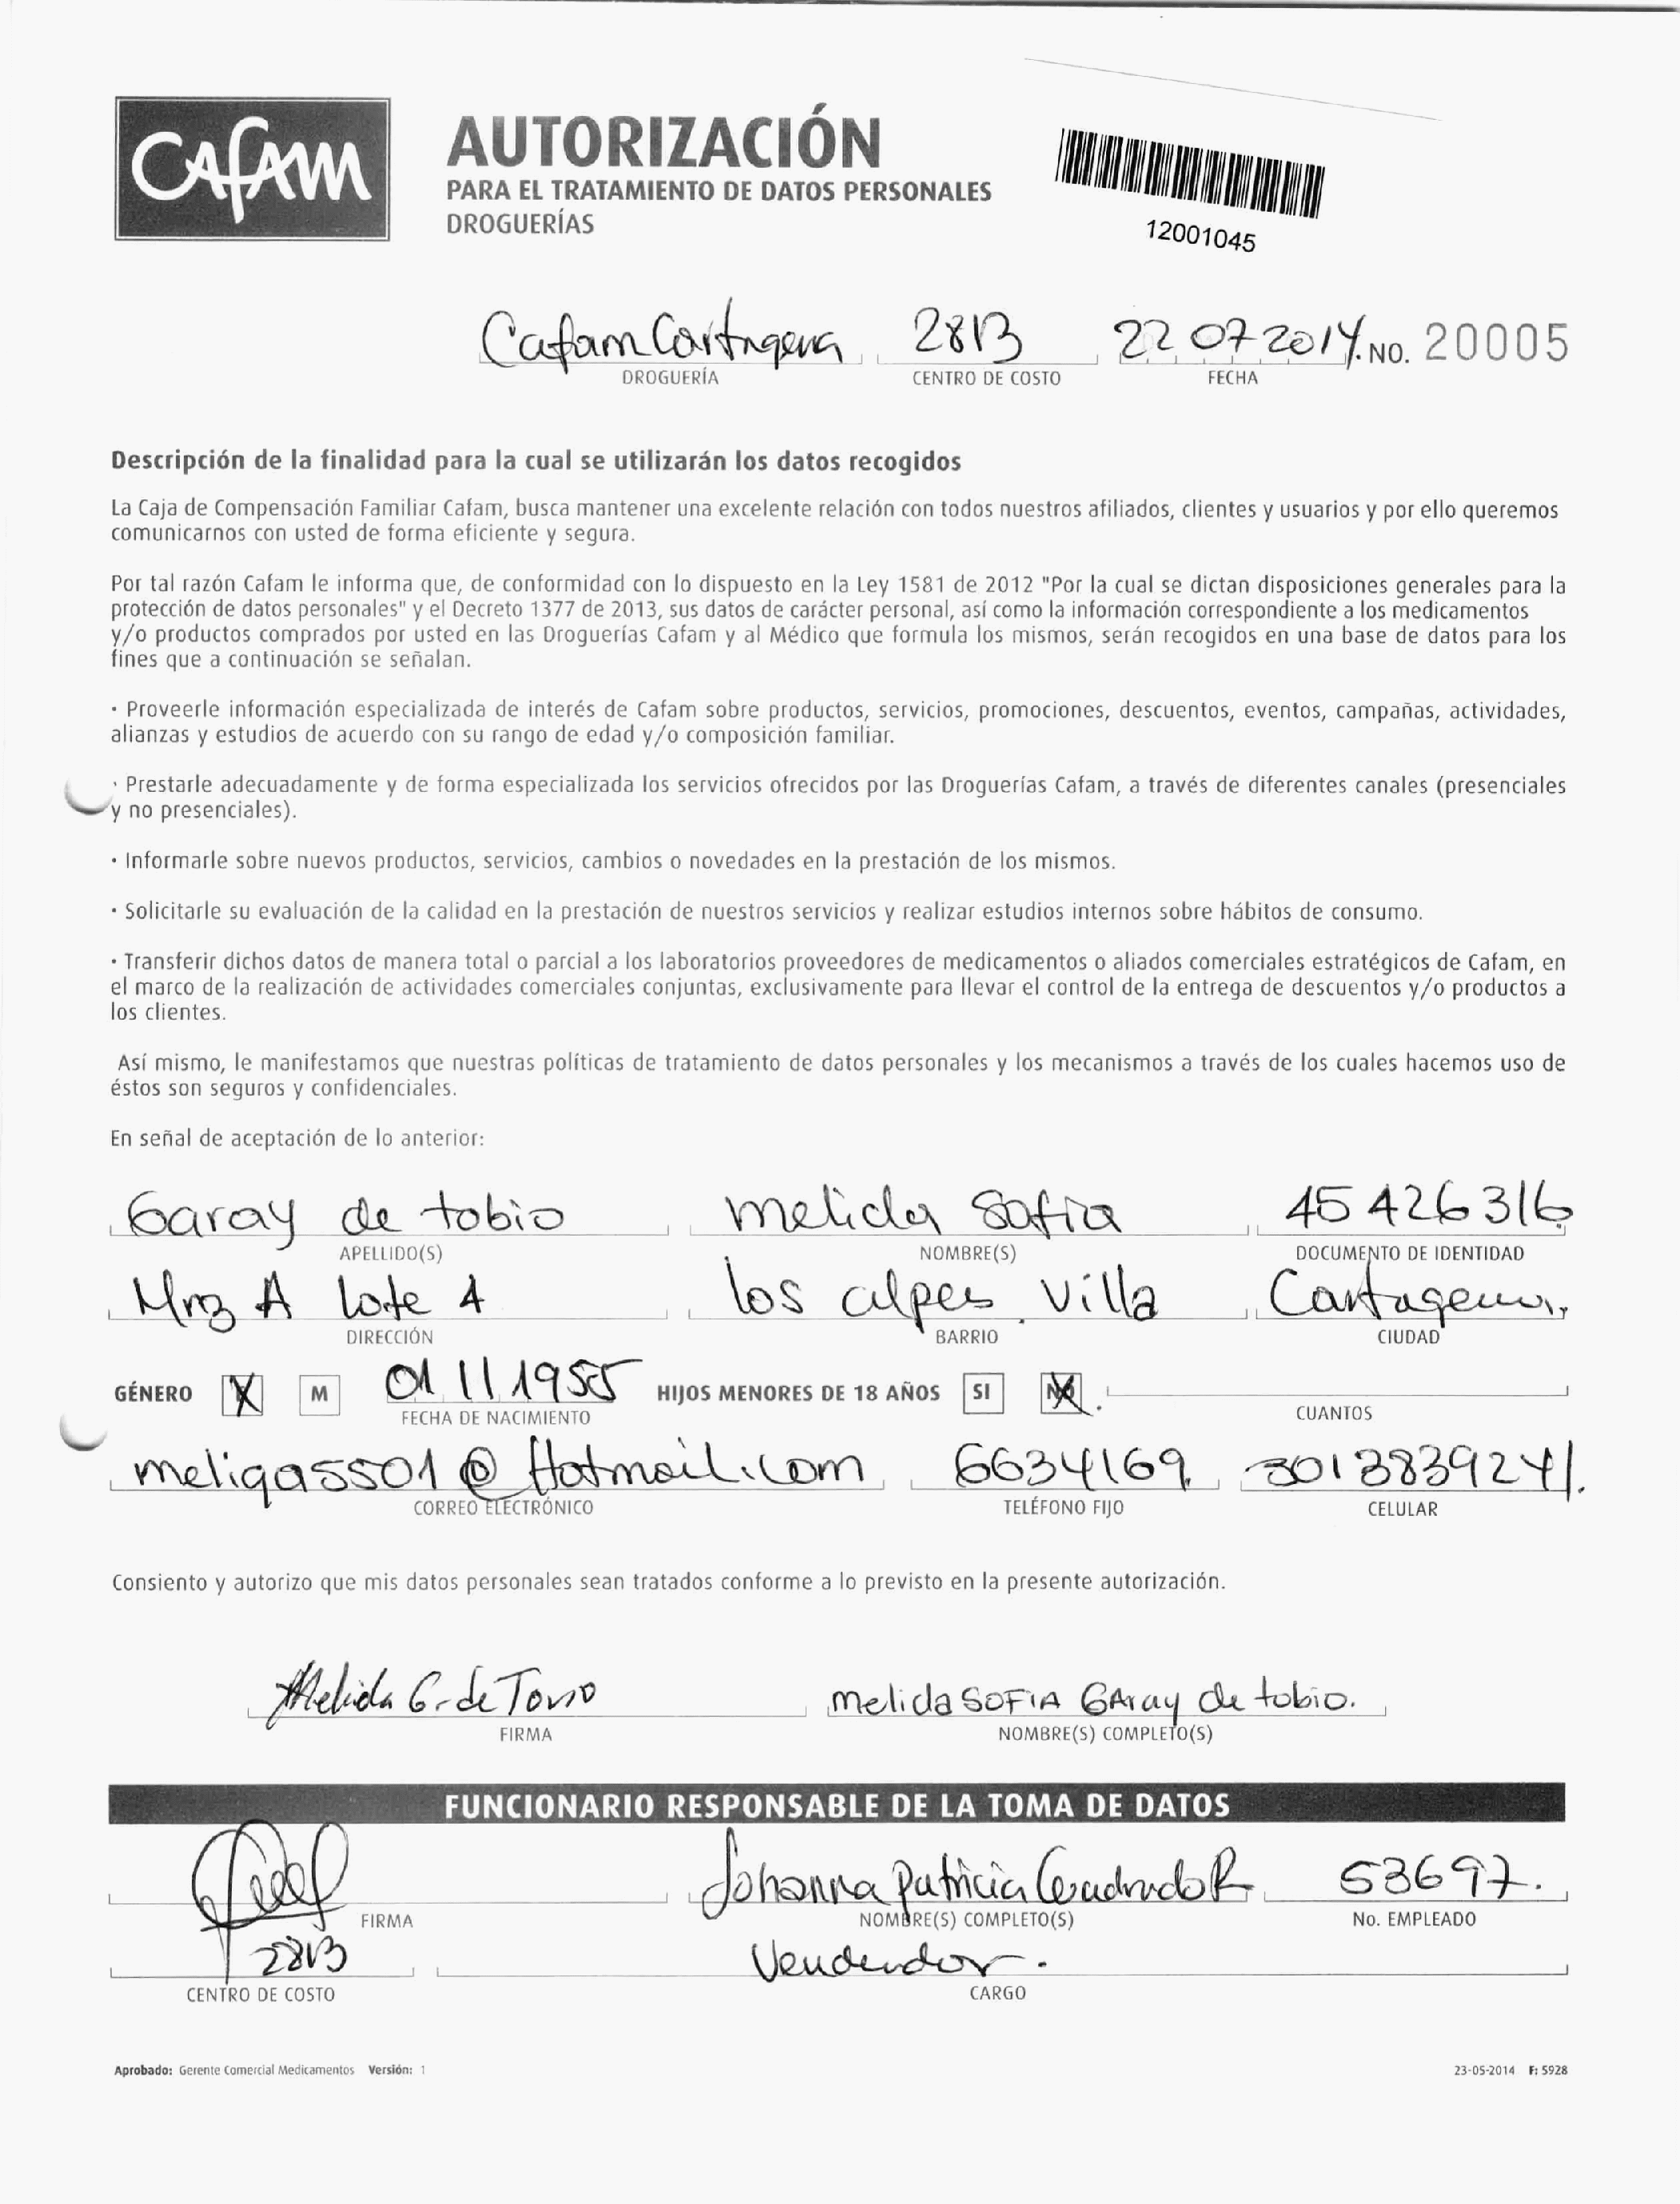 Cafam
AUTORIZACIÓN
PARA EL TRATAMIENTO DE DATOS PERSONALES
DROGUERÍAS
12001045
Cafam Cartagena 2813 22 07 2014. NO. 20005
DROGUERÍA CENTRO DE COSTO FECHA
Descripción de la finalidad para la cual se utilizarán los datos recogidos
La Caja de Compensación Familiar Cafam, busca mantener una excelente relación con todos nuestros afiliados, clientes y usuarios y por ello queremos
comunicarnos con usted de forma eficiente y segura.
Por tal razón Cafam le informa que, de conformidad con lo dispuesto en la Ley 1581 de 2012 "Por la cual se dictan disposiciones generales para la
protección de datos personales" y el Decreto 1377 de 2013, sus datos de carácter personal, así como la información correspondiente a los medicamentos
y/o productos comprados por usted en las Droguerías Cafam y al Médico que formula los mismos, serán recogidos en una base de datos para los
fines que a continuación se señalan.
· Proveerle información especializada de interés de Cafam sobre productos, servicios, promociones, descuentos, eventos, campañas, actividades,
alianzas y estudios de acuerdo con su rango de edad y/o composición familiar.
· Prestarle adecuadamente y de forma especializada los servicios ofrecidos por las Droguerías Cafam, a través de diferentes canales (presenciales
y no presenciales).
· Informarle sobre nuevos productos, servicios, cambios o novedades en la prestación de los mismos.
· Solicitarle su evaluación de la calidad en la prestación de nuestros servicios y realizar estudios internos sobre hábitos de consumo.
· Transferir dichos datos de manera total o parcial a los laboratorios proveedores de medicamentos o aliados comerciales estratégicos de Cafam, en
el marco de la realización de actividades comerciales conjuntas, exclusivamente para llevar el control de la entrega de descuentos y/o productos a
los clientes.
Así mismo, le manifestamos que nuestras políticas de tratamiento de datos personales y los mecanismos a través de los cuales hacemos uso de
éstos son seguros y confidenciales.
En señal de aceptación de lo anterior:
Garay de tobio melida Sofia 45426316
APELLIDO(S) NOMBRE(S) DOCUMENTO DE IDENTIDAD
Mnz A lote 4 los alpes villa Cartagena.
DIRECCIÓN BARRIO CIUDAD
GÉNERO X M 01 11 1955 HIJOS MENORES DE 18 AÑOS SI NO
FECHA DE NACIMIENTO CUANTOS
meligas501@Hotmail.com 6634169 3013839241.
CORREO ELECTRÓNICO TELÉFONO FIJO CELULAR
Consiento y autorizo que mis datos personales sean tratados conforme a lo previsto en la presente autorización.
Melida G. de Tovio melida SOFIA GAray de tobio.
FIRMA NOMBRE(S) COMPLETO(S)
FUNCIONARIO RESPONSABLE DE LA TOMA DE DATOS
Johanna Patricia Cuadrado R 53697.
FIRMA NOMBRE(S) COMPLETO(S) No. EMPLEADO
2813 Vendedor.
CENTRO DE COSTO CARGO
Aprobado: Gerente Comercial Medicamentos Versión: 1 23-05-2014 F: 5928